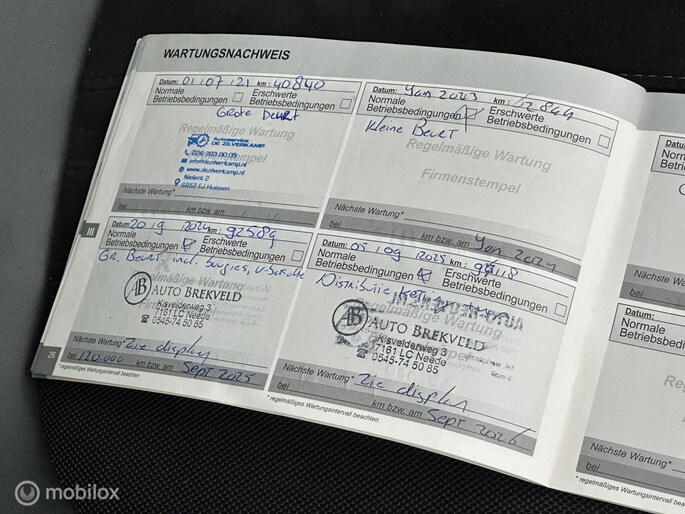 WARTUNGSNACHWEIS
Datum: 01/07/21 km: 40840
Normale Betriebsbedingungen
Erschwerte Betriebsbedingungen
Grote beurt
Regelmäßige Wartung
Autoservice
DE ZILVERKAMP
026 303 00 05
info@dezilverkamp.nl
www.dezilverkamp.nl
Nielant 2
6852 EJ Huissen
Nächste Wartung*
bei km bzw. am
Datum: Jan 2023 km:
Normale Betriebsbedingungen
Erschwerte Betriebsbedingungen
Kleine Beurt
Regelmäßige Wartung
Firmenstempel
Nächste Wartung*
bei km bzw. am Jan 2024
III
Datum: 20/9 2024 km: 92589
Normale Betriebsbedingungen
Erschwerte Betriebsbedingungen
Gr. Beurt, incl. bougies,
AB AUTO BREKVELD
Kisvelderweg 3
7161 LC Neede
0545-74 50 85
Nächste Wartung* Zie display
bei 120.000 km bzw. am Sept 2025
26
* regelmäßiges Wartungsintervall beachten
Datum: 05/09 2025 km:
Normale Betriebsbedingungen
Erschwerte Betriebsbedingungen
Distributie
Regelmäßige Wartung
AB AUTO BREKVELD
Kisvelderweg 3
7161 LC Neede
0545-74 50 85
Nächste Wartung* Zie display
bei km bzw. am Sept 2026
* regelmäßiges Wartungsintervall beachten
Datum:
Normale
Betriebsbedingungen
Nächste Wartung*
bei
* regelmäßiges Wartungsintervall beachten
mobilox